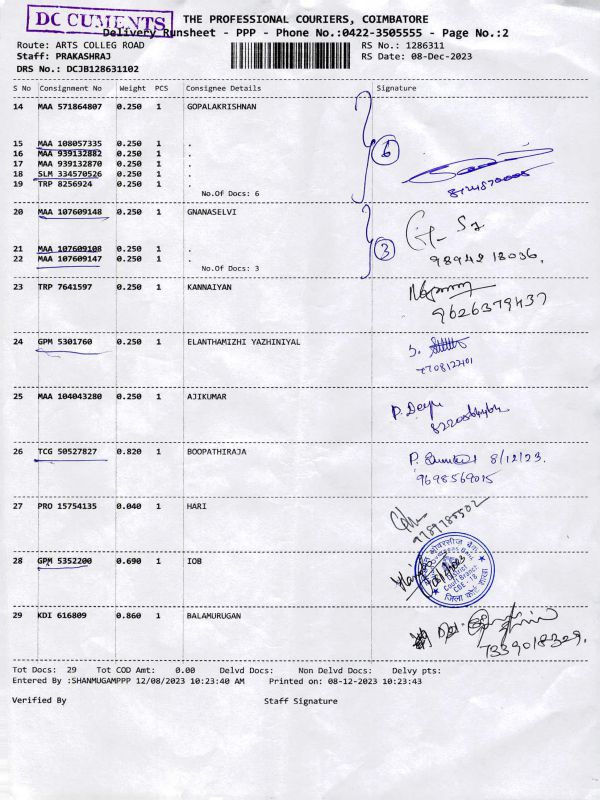 DC CUMENTS
THE PROFESSIONAL COURIERS, COIMBATORE
Delivery Runsheet - PPP - Phone No.:0422-3505555 - Page No.:2
Route: ARTS COLLEG ROAD RS No.: 1286311
Staff: PRAKASHRAJ RS Date: 08-Dec-2023
DRS No.: DCJB128631102
S No Consignment No Weight PCS Consignee Details Signature
14 MAA 571864807 0.250 1 GOPALAKRISHNAN
15 MAA 108057335 0.250 1 .
6
16 MAA 939132882 0.250 1 .
17 MAA 939132870 0.250 1 .
18 SLM 334570526 0.250 1 .
19 TRP 8256924 0.250 1 .
No.Of Docs: 6
20 MAA 107609148 0.250 1 GNANASELVI
21 MAA 107609108 0.250 1 .
3
22 MAA 107609147 0.250 1 .
No.Of Docs: 3
23 TRP 7641597 0.250 1 KANNAIYAN
9626379437
24 GPM 5301760 0.250 1 ELANTHAMIZHI YAZHINIYAL
25 MAA 104043280 0.250 1 AJIKUMAR
26 TCG 50527827 0.820 1 BOOPATHIRAJA
8/12/23.
9698569015
27 PRO 15754135 0.040 1 HARI
9789785502
28 GPM 5352200 0.690 1 IOB
29 KDI 616809 0.860 1 BALAMURUGAN
7339018329.
Tot Docs: 29 Tot COD Amt: 0.00 Delvd Docs: Non Delvd Docs: Delvy pts:
Entered By :SHANMUGAMPPP 12/08/2023 10:23:40 AM Printed on: 08-12-2023 10:23:43
Verified By Staff Signature